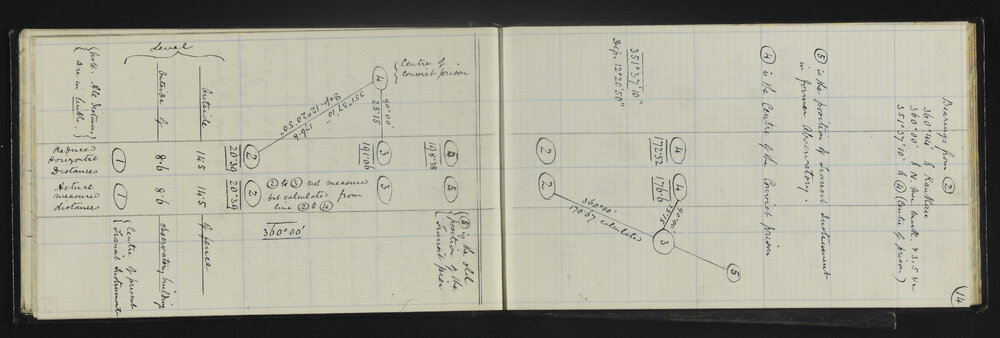 14
Bearings from (2)
360° 44' to Kaukau
360° 00' to N. Mer. mark.
351° 37' 10" to (4) (Centre of prison)
(5) is the position of Transit Instrument
in former Observatory.
(4) is the Centre of the Convict prison
351° 37' 10"
Dep. 12° 20' 50"
(4)
1732
(4)
1766
90° 00'
(3)
(5)
360° 00'
1706.7 calculated
(2)
(2)
Centre of
Convict prison
(4)
90° 00'
257.5
351° 37' 10"
1766
Dep. 12° 20' 50"
(5)
1983.8
(5)
(5) is the old
position of the
Transit pier
(3)
1910.6
(3)
(2) to (3) not measured
but calculated from
line (2) to (4)
360° 00'
(2)
203.9
(2)
203.9
Level
Outside
14.5
14.5
of fence
Outside of
8.6
8.6
observatory building
(1)
(1)
Centre of present
Transit Instrument
Reduced
Horizontal
Distances
Actual
measured
distances
Note. All distances
are in links.